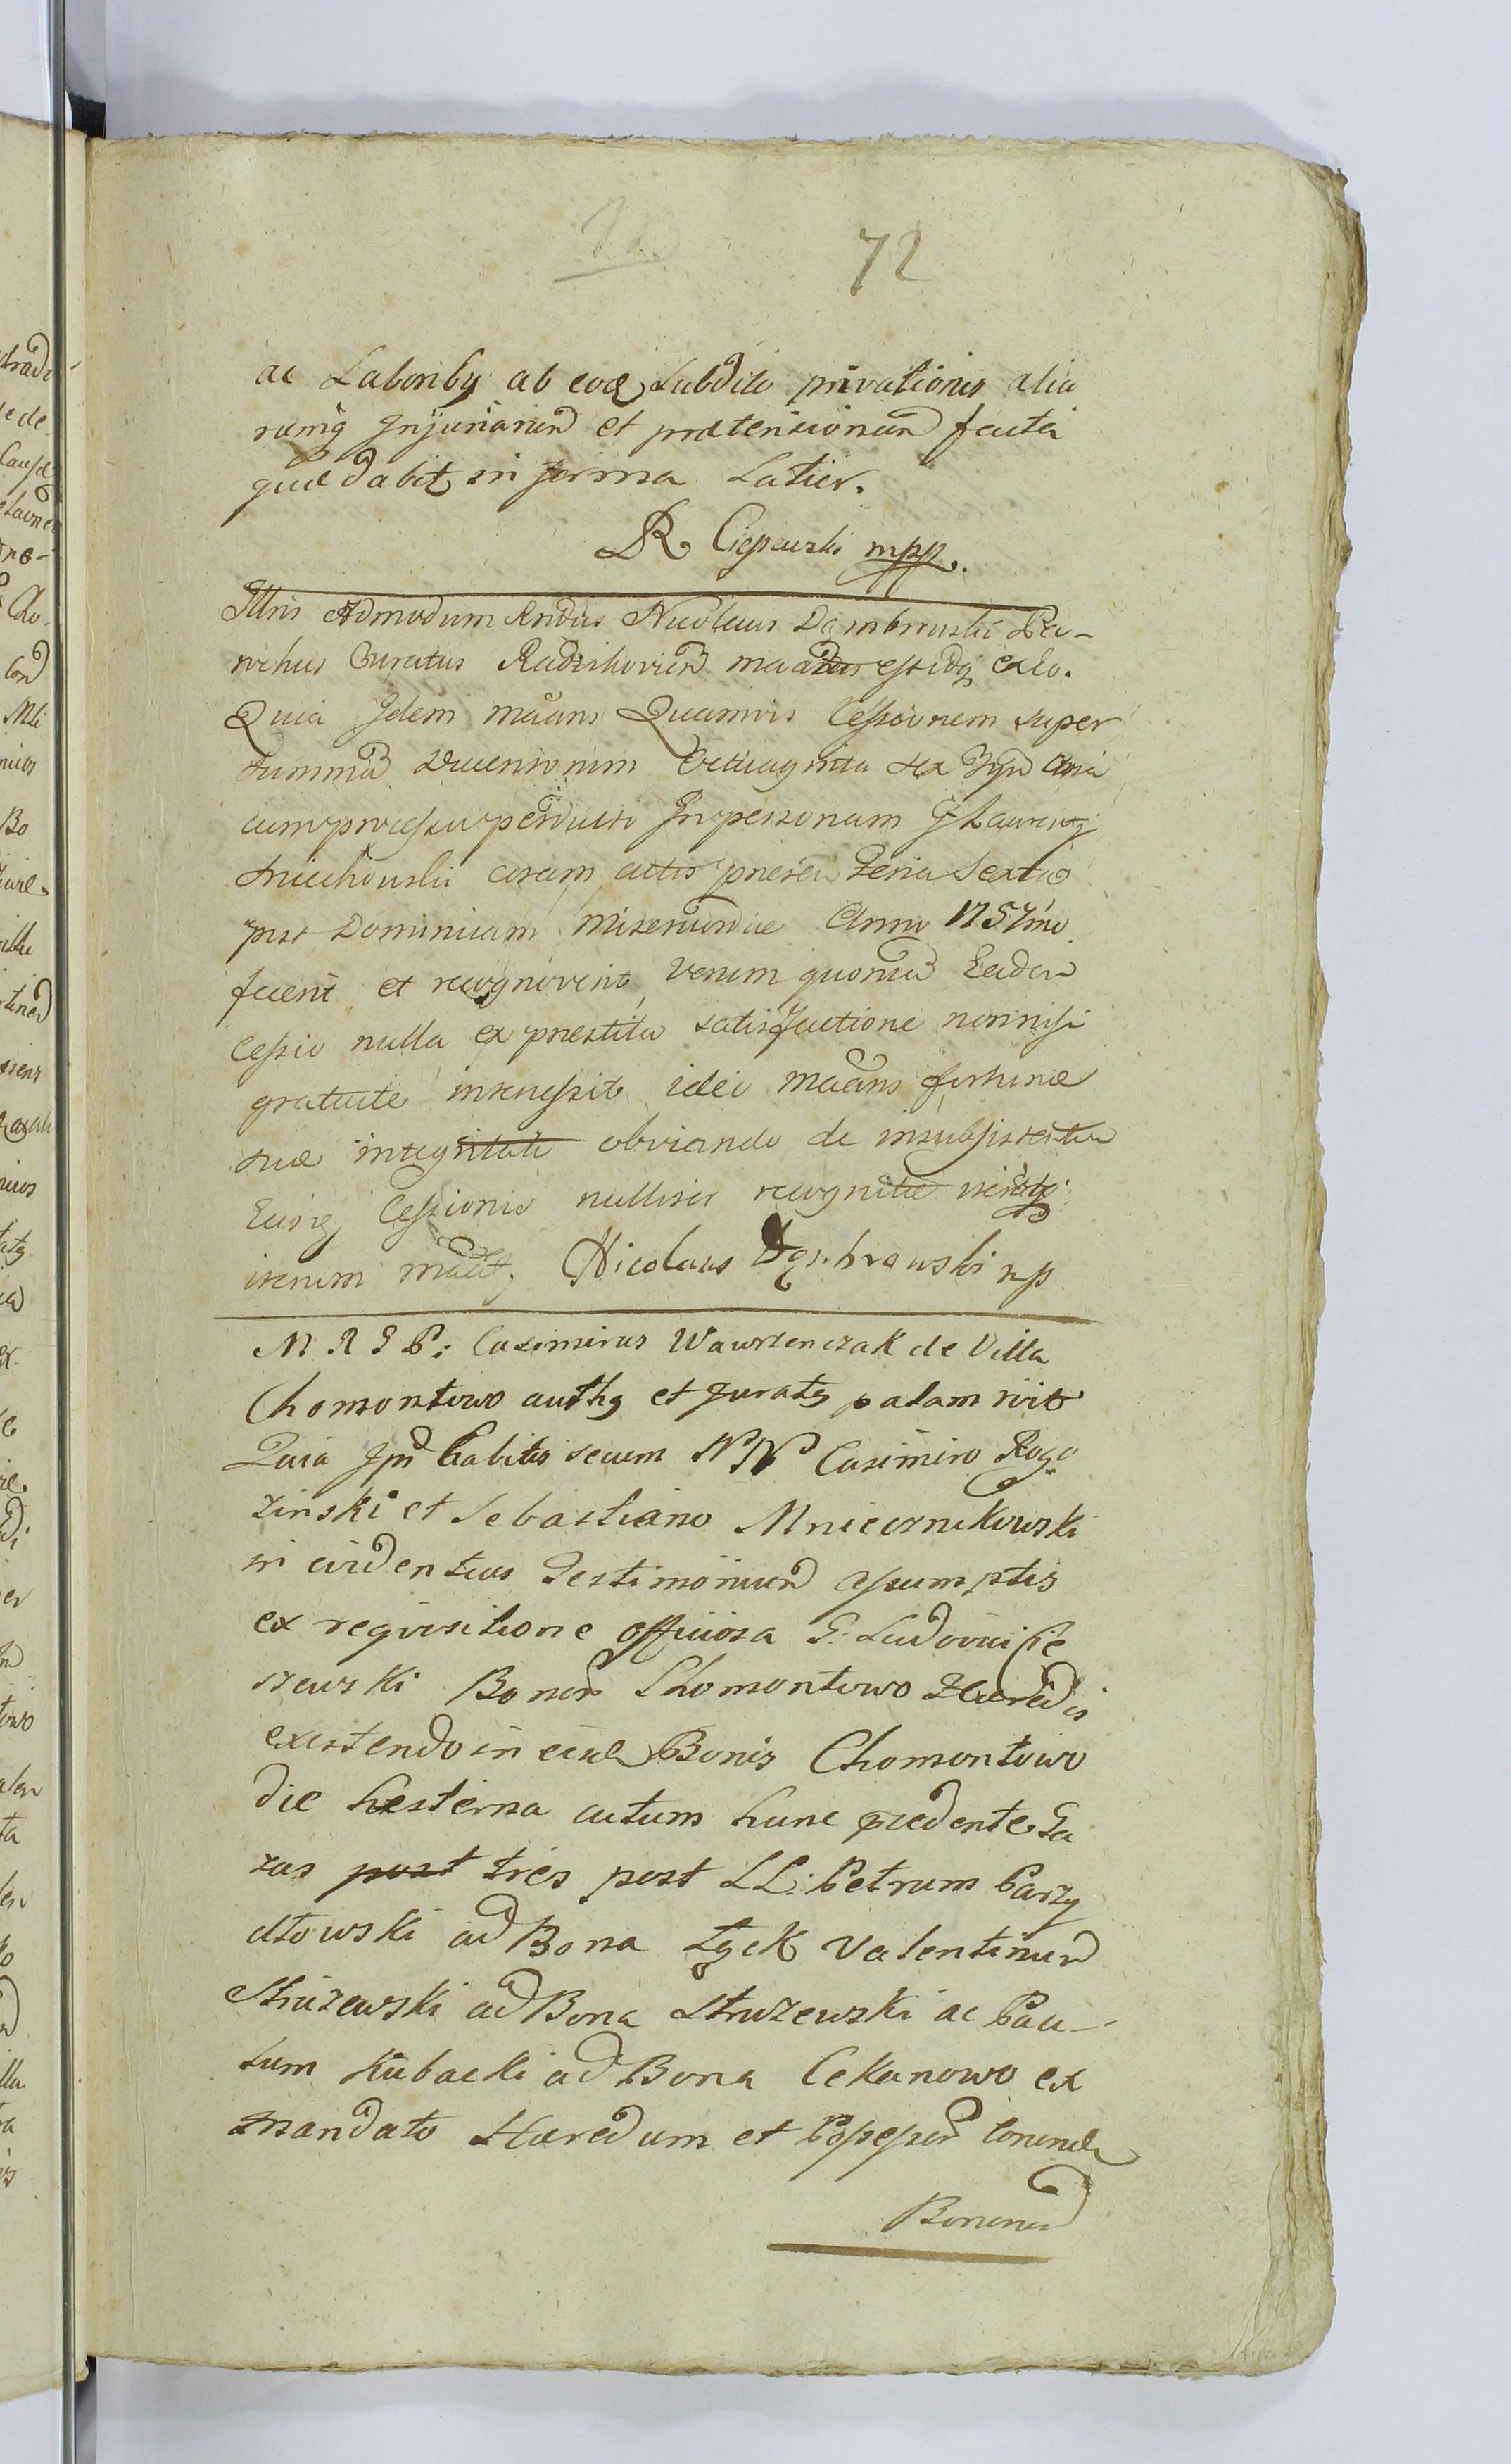 72
ac Laboriby ab eod Subdito privationis alia
rumq Injuriarum et prætensionum facta
quæ dabit in forma Latior.
R Cieszewski mpp.
Illris Admodum Rndus Nicolaus Dąmbrowski Pa-
rochus Curatus Radzikovien mactus est idq exeo.
Quia Idem maans Quamvis Cessionem super
summa Ducentorum Octuaginta
cum processu perducto In personam G Laurentij
coram actis præsen Feria Sexta
post Dominicam Misericordiæ Anno 1757mo
fecerit et recognoverit, Verum quoniam Eadem
Cessio nulla ex præstita satisfactione nonnisi
gratuite intercessit ideo maans fortunæ
suæ integritati obviando de insubsistentia
Eiusq Cessionis nulliter recognitæ
iterum Nicolaus Dąmbrowski mp
M R I P: Casimirus Wawrzenczak de Villa
Chomontowo authq et Juratq palam
Quia Ipse habitis secum NN Casimiro Rogo
zinski et Sebastiano Mniecznikowski
in evidentius Testimonium assumptis
ex requisitione officiosa G. Ludovici Cie
szewski Bonor Chomontowo Hæredis
existendo in eisd Bonis Chomontowo
die hesterna actum hunc præcedente Ga
zas post tres post LL: Petrum Parzy
ad Bona Łęck Valentinum
Struzewski ad Bona Struzewski ac Pau-
lum Kubacki ad Bona Cekanowo ex
mandato Hæredum et Possessor eorund
Bonorum